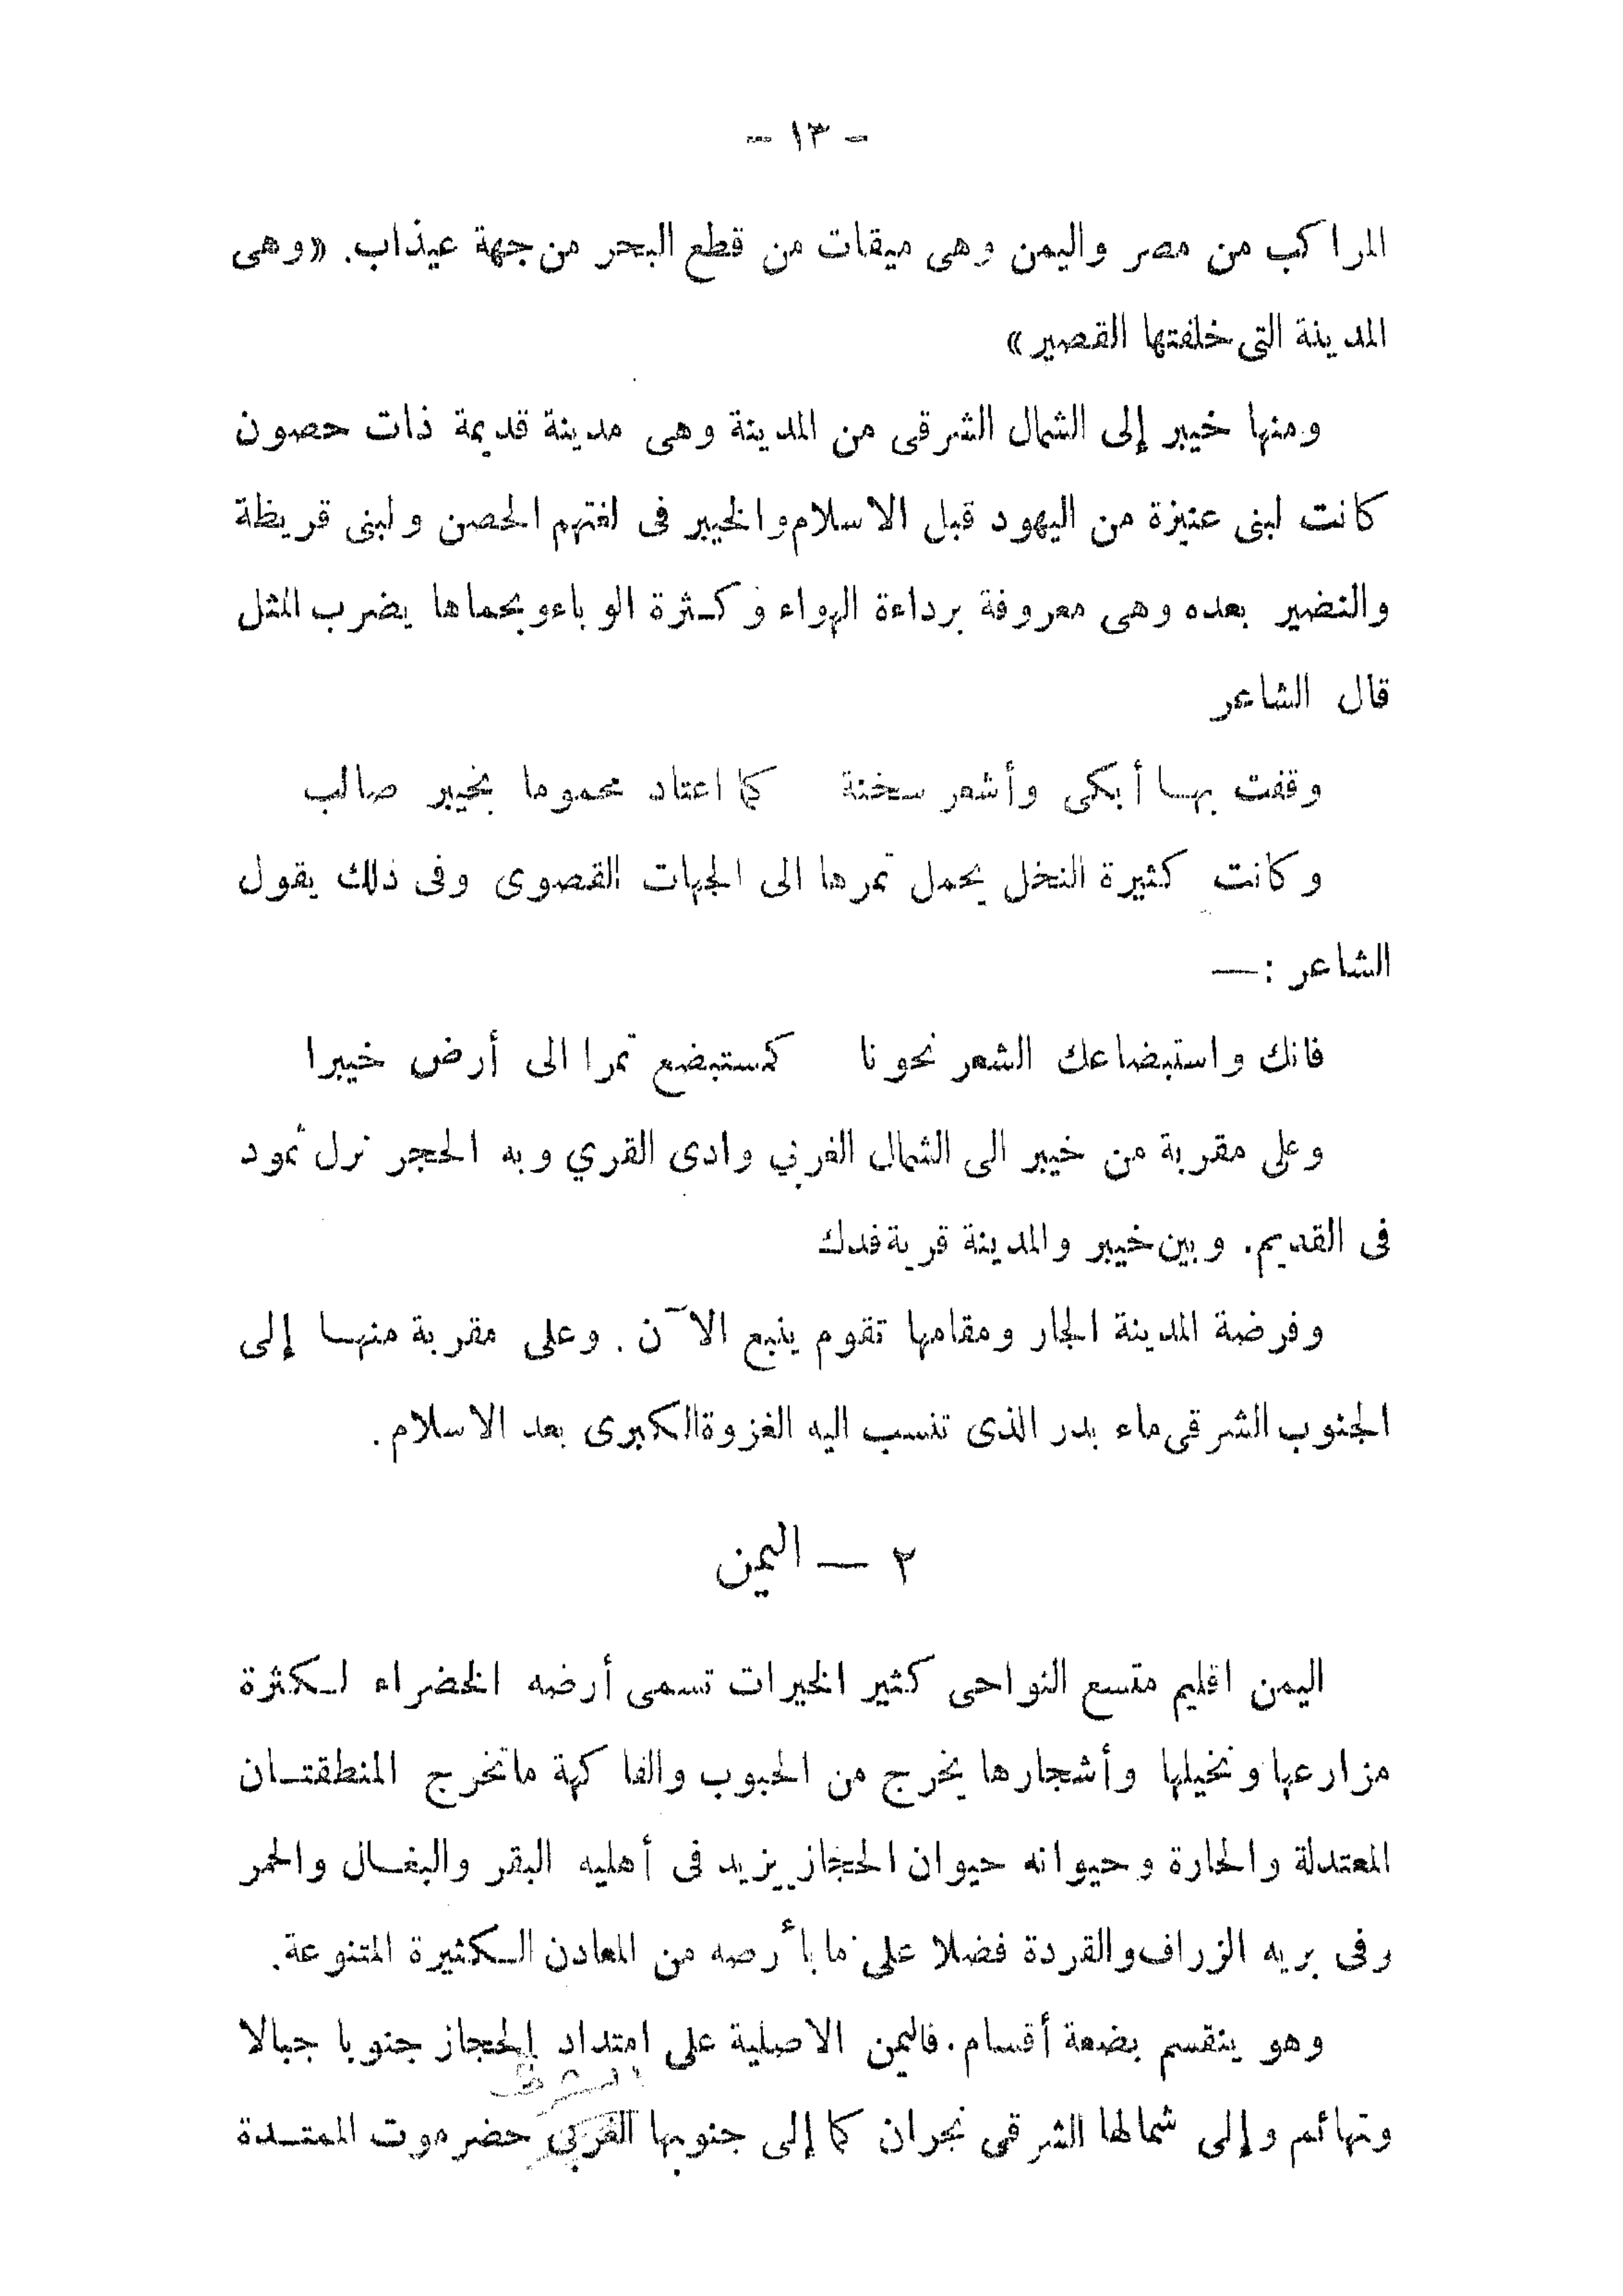 - ١٣ -
المراكب من مصر واليمن وهى ميقات من قطع البحر من جهة عيذاب. «وهى
المدينة التى خلفتها القصير»
ومنها خيبر إلى الشمال الشرقى من المدينة وهى مدينة قديمة ذات حصون
كانت لبنى عنيزة من اليهود قبل الاسلام والخيبر فى لغتهم الحصن ولبنى قريظة
والنضير بعده وهى معروفة برداءة الهواء وكثرة الوباء وبحماها يضرب المثل
قال الشاعر
وقفت بها أبكى وأشعر سخنة كما اعتاد محموما بخيبر صالب
وكانت كثيرة النخل يحمل تمرها الى الجهات القصوى وفى ذلك يقول
الشاعر : —
فانك واستبضاعك الشعر نحونا كمستبضع تمرا الى أرض خيبرا
وعلى مقربة من خيبر الى الشمال الغربي وادى القري وبه الحجر نزل ثمود
فى القديم. وبين خيبر والمدينة قرية فدك
وفرضة المدينة الجار ومقامها تقوم ينبع الآن. وعلى مقربة منها إلى
الجنوب الشرقى ماء بدر الذى تنسب اليه الغزوة الكبرى بعد الاسلام.
٢ — اليمن
اليمن اقليم متسع النواحى كثير الخيرات تسمى أرضه الخضراء لكثرة
مزارعها ونخيلها وأشجارها يخرج من الحبوب والفاكهة ماتخرج المنطقتان
المعتدلة والحارة وحيوانه حيوان الحجاز يزيد فى أهليه البقر والبغال والحمر
وفى بريه الزراف والقردة فضلا على ما بأرضه من المعادن الكثيرة المتنوعة.
وهو ينقسم بضعة أقسام. فاليمن الاصلية على امتداد الحجاز جنوبا جبالا
وتهائم وإلى شمالها الشرقى نجران كما إلى جنوبها الغربي حضرموت الممتدة